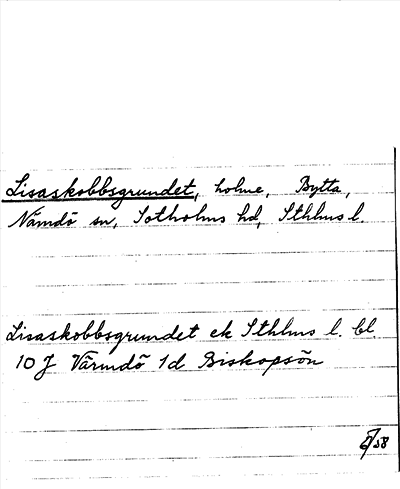 Lisaskobbsgrundet, holme, Bytta,
Nämdö sn, Sotholms hd, Sthlms l.
Lisaskobbsgrundet ek Sthlms l. bl.
10 J Värmdö 1d Biskopsön
58